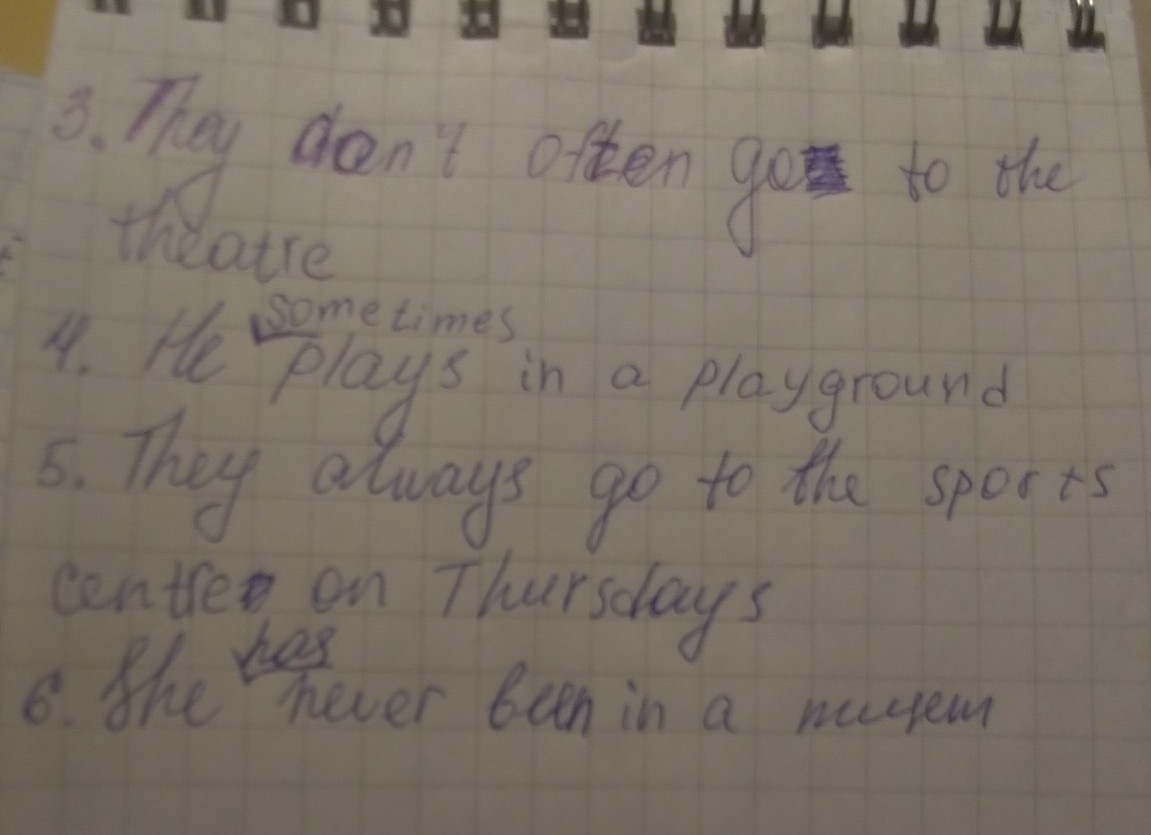 3. They don't often go to the
theatre
4. He sometimes plays in a playground
5. They always go to the sports
centre on Thursdays
6. She has never been in a